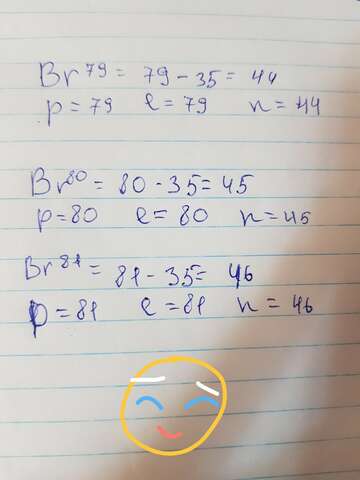 Br⁷⁹ = 79 - 35 = 44
p = 79 e = 79 n = 44
Br⁸⁰ = 80 - 35 = 45
p = 80 e = 80 n = 45
Br⁸¹ = 81 - 35 = 46
p = 81 e = 81 n = 46